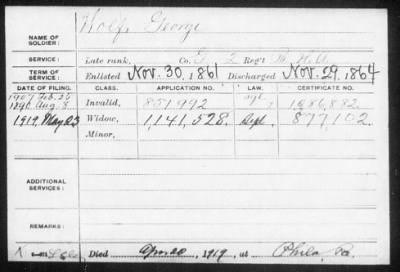 NAME OF SOLDIER: Wolf, George
SERVICE: Late rank, Co. I, 2 Reg't P. H. A.
TERM OF SERVICE: Enlisted Nov. 30, 1861 Discharged Nov. 29, 1864
DATE OF FILING. CLASS. APPLICATION NO. LAW. CERTIFICATE NO.
1907 Feb. 26
1890 Aug. 8 Invalid, 851,992 1,086,882
1919, May 23 Widow, 1,141,528. Sept. 877,102.
Minor,
ADDITIONAL SERVICES:
REMARKS:
Died 1919, at Phila, Pa.